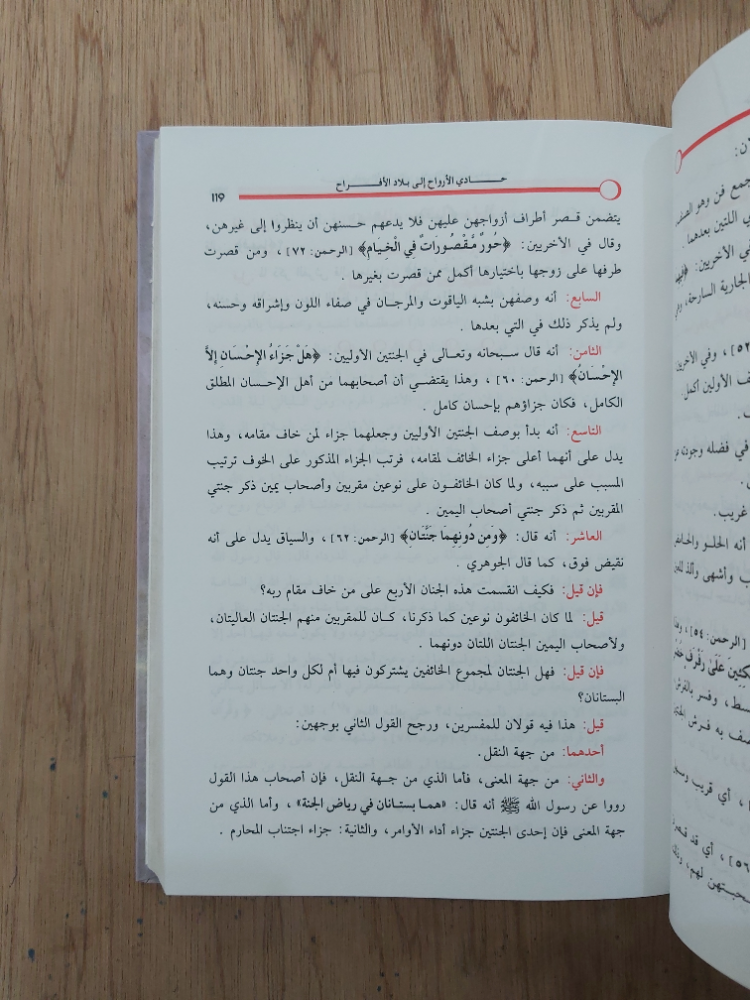 حـــادي الأرواح إلى بـلاد الأفـــراح
١١٩
يتضمن قصر أطراف أزواجهن عليهن فلا يدعهم حسنهن أن ينظروا إلى غيرهن،
وقال في الأخريين: ﴿حُورٌ مَّقْصُورَاتٌ فِي الْخِيَامِ﴾ [الرحمن: ٧٢] ، ومن قصرت
طرفها على زوجها باختيارها أكمل ممن قصرت بغيرها .
السابع: أنه وصفهن بشبه الياقوت والمرجان في صفاء اللون وإشراقه وحسنه،
ولم يذكر ذلك في التي بعدها .
الثامن: أنه قال سبحانه وتعالى في الجنتين الأوليين: ﴿هَلْ جَزَاءُ الإِحْسَانِ إِلاَّ
الإِحْسَانُ﴾ [الرحمن: ٦٠] ، وهذا يقتضي أن أصحابهما من أهل الإحسان المطلق
الكامل، فكان جزاؤهم بإحسان كامل .
التاسع: أنه بدأ بوصف الجنتين الأوليين وجعلهما جزاء لمن خاف مقامه، وهذا
يدل على أنهما أعلى جزاء الخائف لمقامه، فرتب الجزاء المذكور على الخوف ترتيب
المسبب على سببه، ولما كان الخائفون على نوعين مقربين وأصحاب يمين ذكر جنتي
المقربين ثم ذكر جنتي أصحاب اليمين .
العاشر: أنه قال: ﴿وَمِن دُونِهِمَا جَنَّتَانِ﴾ [الرحمن: ٦٢] ، والسياق يدل على أنه
نقيض فوق، كما قال الجوهري .
فإن قيل: فكيف انقسمت هذه الجنان الأربع على من خاف مقام ربه؟
قيل: لما كان الخائفون نوعين كما ذكرنا، كان للمقربين منهم الجنتان العاليتان،
ولأصحاب اليمين الجنتان اللتان دونهما .
فإن قيل: فهل الجنتان لمجموع الخائفين يشتركون فيها أم لكل واحد جنتان وهما
البستانان؟
قيل: هذا فيه قولان للمفسرين، ورجح القول الثاني بوجهين:
أحدهما: من جهة النقل.
والثاني: من جهة المعنى، فأما الذي من جهة النقل، فإن أصحاب هذا القول
رووا عن رسول الله ﷺ أنه قال: «هما بستانان في رياض الجنة» ، وأما الذي من
جهة المعنى فإن إحدى الجنتين جزاء أداء الأوامر، والثانية: جزاء اجتناب المحارم .